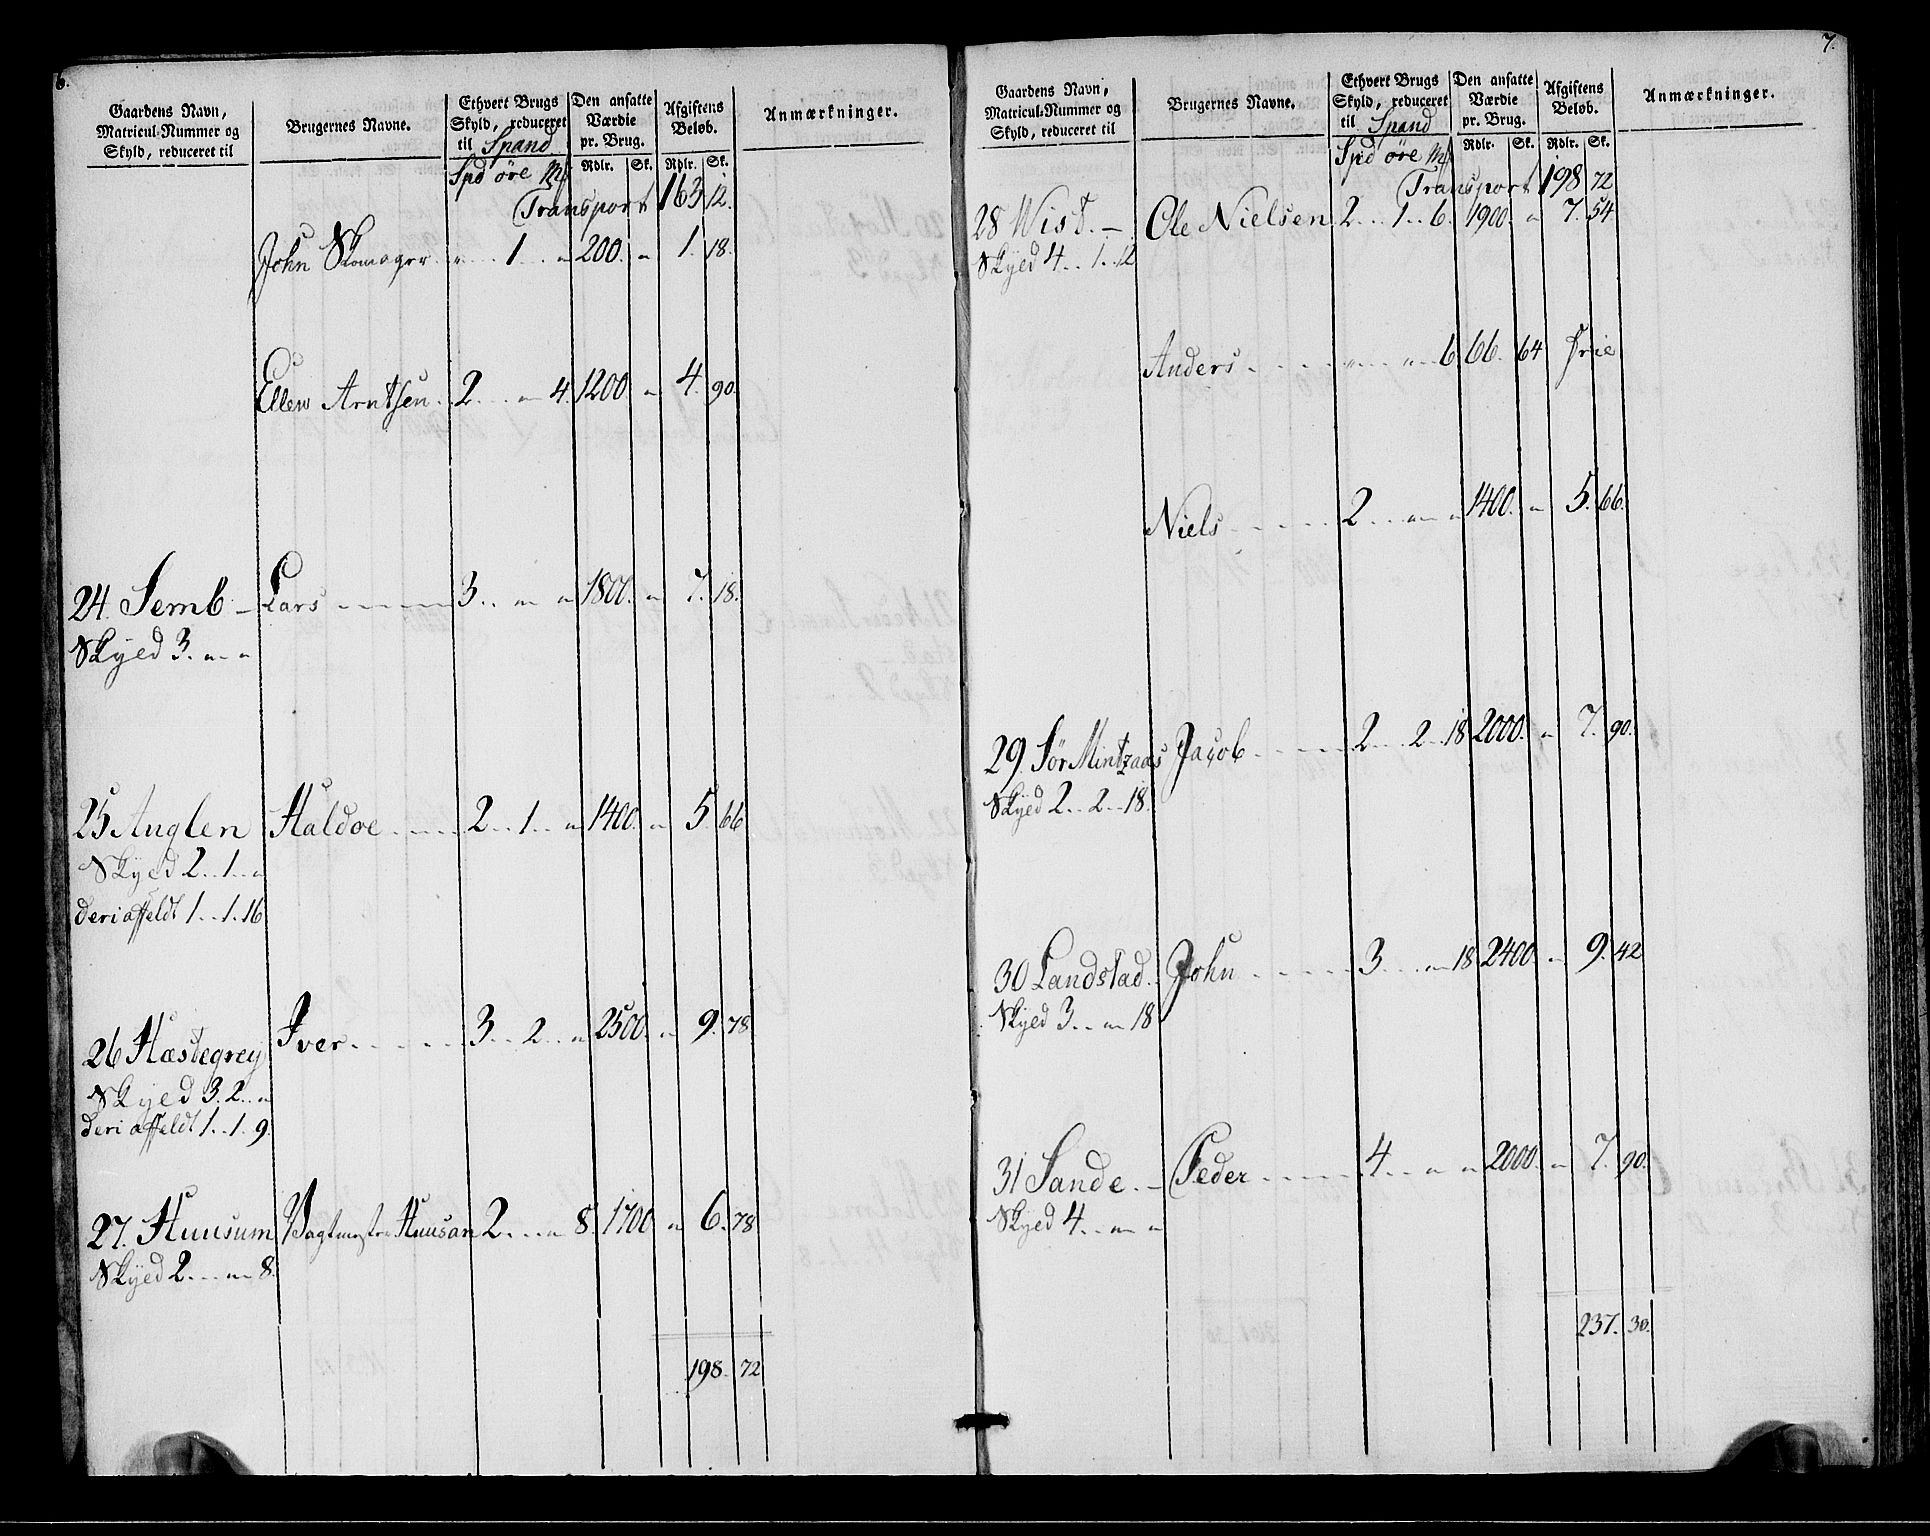 6.
Gaardens Navn, Matricul-Nummer og Skyld, reduceret til
Brugernes Navne.
Ethvert Brugs Skyld, reduceret til Spand
Den ansatte Værdie pr. Brug.
Afgiftens Beløb.
Anmærkninger.
Spd øre Mk Rdlr. Sk. Rdlr. Sk.
Transport 163 12.
John Skomager . . „ . . 1 . . „ 200. „ 1. 18.
Ellen Arntsen . . 2 . . „ 4. 1200 „ 4. 90.
24. Semb – Lars . . . . 3 . . „ „ 1800. „ 7. 18.
Skyed 3. „ „
25 Auglen Haldoe . . . . 2 . . 1 . . „ 1400. „ 5. 66
Skyed 2 . . 1 . . „
deri affeldt 1 . . 1. 16
26 Hæstegrey Iver . . . . 3 . . 2 . . „ 2500. „ 9. 78.
Skyed 3. 2 . . „
deri affeldt 1 . . 1. 9.
27. Huusum Vagtmester Huusan 2 . . „ 8. 1700 „ 6. 78
Skyed 2 . . „ 8.
198. 72
7.
Gaardens Navn, Matricul-Nummer og Skyld, reduceret til
Brugernes Navne.
Ethvert Brugs Skyld, reduceret til Spand
Den ansatte Værdie pr. Brug.
Afgiftens Beløb.
Anmærkninger.
Spd øre Mk Rdlr. Sk. Rdlr. Sk.
Transport 198 72
28 Wist. – Ole Nielsen 2 . . 1 . . 6. 1900. „ 7. 54
Skyed 4 . . 1 . . 12
Anders . . . . „ . . „ 6 66. 64 Frie
Niels . . . . 2 . . „ „ 1400. „ 5. 66.
29. Sør Mintzaas Jacob . . . . 2 . . 2 . . 18 2000. „ 7. 90.
Skyed 2 . . 2 . . 18.
30 Landstad. John . . . . 3 . . „ 18 2400 „ 9. 42
Skyed 3 . . „ 18
31 Sande. – Peder . . . . 4 . . „ „ 2000. „ 7. 90.
Skyed 4 . . „ „
237. 30.